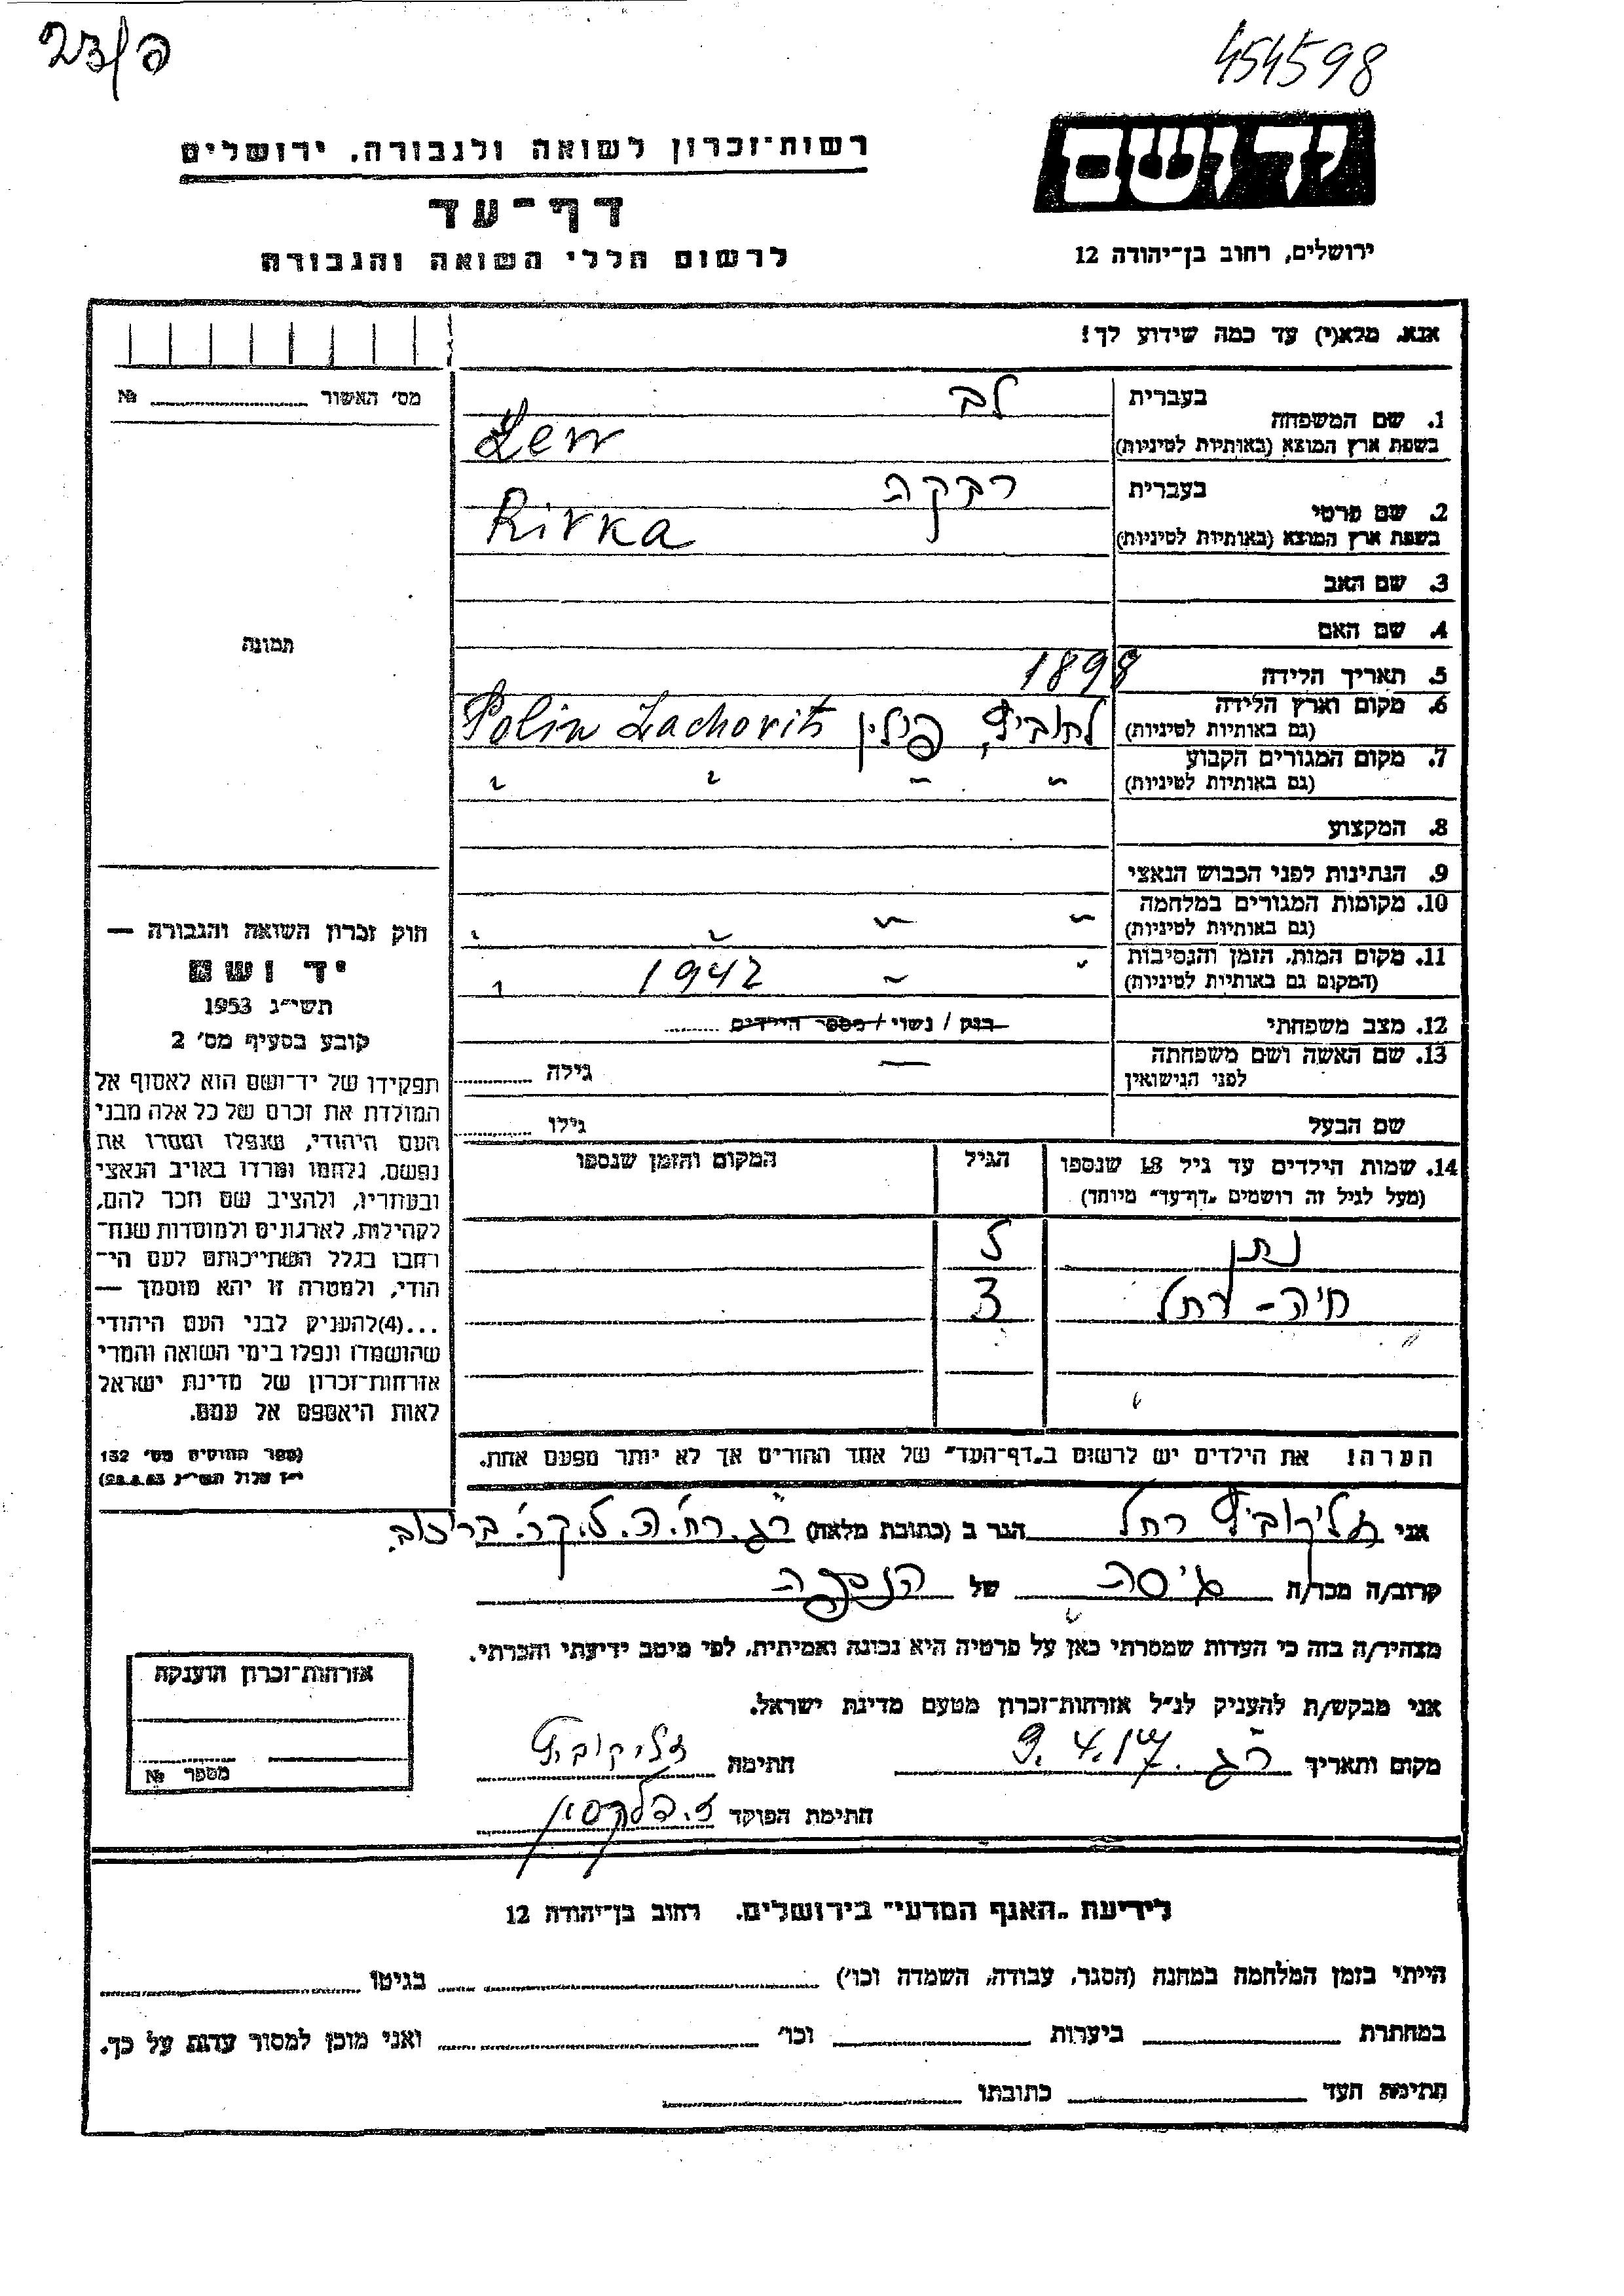 454598
רשות־זכרון לשואה ולגבורה. ירושלים
דף־עד
לרשום חללי השואה והגבורה
יד ושם
ירושלים, רחוב בן־יהודה 12
אנא. מלא(י) עד כמה שידוע לך!
מס׳ האשור №
1. שם המשפחה
בעברית לב
בשפת ארץ המוצא (באותיות לטיניות) Lew
2. שם פרטי
בעברית רבקה
בשפת ארץ המוצא (באותיות לטיניות) Rivka
3. שם האב
4. שם האם
תמונה
5. תאריך הלידה 1898
6. מקום וארץ הלידה
(גם באותיות לטיניות) לחוביץ, פולין Polin Lachovits
7. מקום המגורים הקבוע
(גם באותיות לטיניות) " " " "
8. המקצוע
9. הנתינות לפני הכבוש הנאצי
10. מקומות המגורים במלחמה
(גם באותיות לטיניות) " " " "
11. מקום המות, הזמן והנסיבות
(המקום גם באותיות לטיניות) " " 1942 "
12. מצב משפחתי רווק / נשוי / מספר הילדים
13. שם האשה ושם משפחתה
לפני הנישואין — גילה
שם הבעל גילו
14. שמות הילדים עד גיל 18 שנספו
(מעל לגיל זה רושמים „דף־עד״ מיוחד)
הגיל
המקום והזמן שנספו
נתן 5
חיה - רחל 3
הערה! את הילדים יש לרשום ב„דף־העד״ של אחד ההורים אך לא יותר מפעם אחת.
חוק זכרון השואה והגבורה —
יד ושם
תשי״ג 1953
קובע בסעיף מס׳ 2
תפקידו של יד־ושם הוא לאסוף אל
המולדת את זכרם של כל אלה מבני
העם היהודי, שנפלו ומסרו את
נפשם, נלחמו ומרדו באויב הנאצי
ובעוזריו, ולהציב שם וזכר להם,
לקהילות, לארגונים ולמוסדות שנח־
רבו בגלל השתייכותם לעם הי־
הודי, ולמטרה זו יהא מוסמך —
...(4)להעניק לבני העם היהודי
שהושמדו ונפלו בימי השואה והמרי
אזרחות־זכרון של מדינת ישראל
לאות היאספם אל עמם.
(ספר החוקים מס׳ 132
י״ז אלול תשי״ג 28.8.53)
אני זליקוביץ רחל הגר ב (כתובת מלאה) ר״ג
קרוב/ה מכר/ה גיסה של הנספה
מצהיר/ה בזה כי העדות שמסרתי כאן על פרטיה היא נכונה ואמיתית, לפי מיטב ידיעתי והכרתי.
אני מבקש/ת להעניק לנ״ל אזרחות־זכרון מטעם מדינת ישראל.
מקום ותאריך ר״ג חתימת זליקוביץ
חתימת הפוקד
אזרחות־זכרון הוענקה
מספר №
לידיעת „האגף המדעי״ בירושלים. רחוב בן־יהודה 12
הייתי בזמן המלחמה במחנה (הסגר, עבודה, השמדה וכו׳) בגיטו
במחתרת ביערות וכו׳ ואני מוכן למסור עדות על כך.
חתימת העד כתובתו